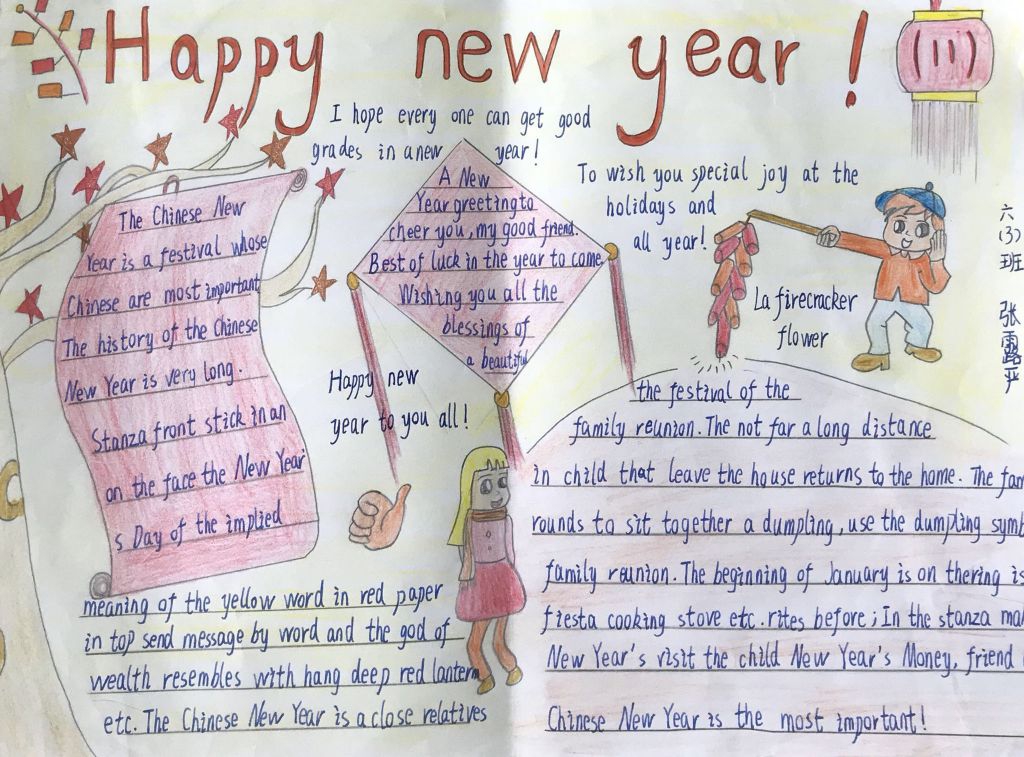 Happy new year!
I hope every one can get good
grades in a new year!
The Chinese New
Year is a festival whose
Chinese are most important
The history of the Chinese
New Year is very long.
Stanza front stick in an
on the face the New Year
s Day of the implied
meaning of the yellow word in red paper
in top send message by word and the god of
wealth resembles with hang deep red lantern
etc. The Chinese New Year is a close relatives
A New
Year greeting to
cheer you, my good friend.
Best of luck in the year to come
Wishing you all the
blessings of
a beautiful
Happy new
year to you all!
To wish you special joy at the
holidays and
all year!
La firecracker
flower
六(3)班 张露严
the festival of the
family reunion. The not far a long distance
in child that leave the house returns to the home. The fam
rounds to sit together a dumpling, use the dumpling symb
family reunion. The beginning of January is on thering is
fiesta cooking stove etc. rites before; In the stanza ma
New Year's visit the child New Year's Money, friend
Chinese New Year is the most important!